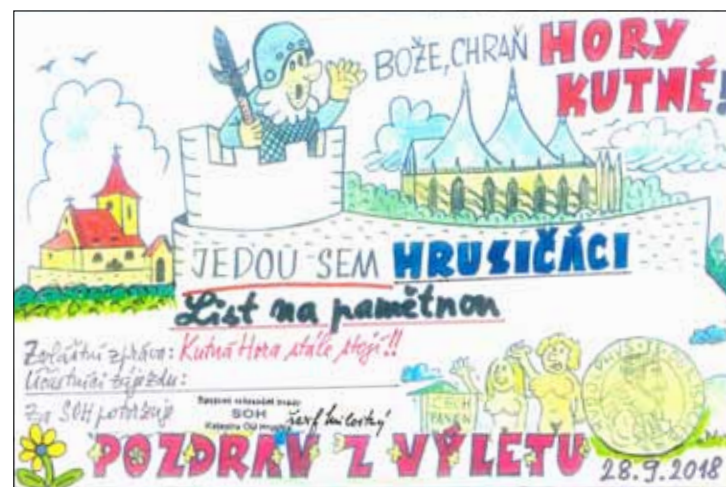 BOŽE, CHRAŇ HORY
KUTNÉ!
JEDOU SEM HRUSIČÁCI
List na pamětnou
Zvláštní zpráva: Kutná Hora stále stojí!!
Účastníci zájezdu:
Za SOH potvrzuje
SOH
CECH
PANEN
POZDRAV Z VÝLETU
28.9.2018